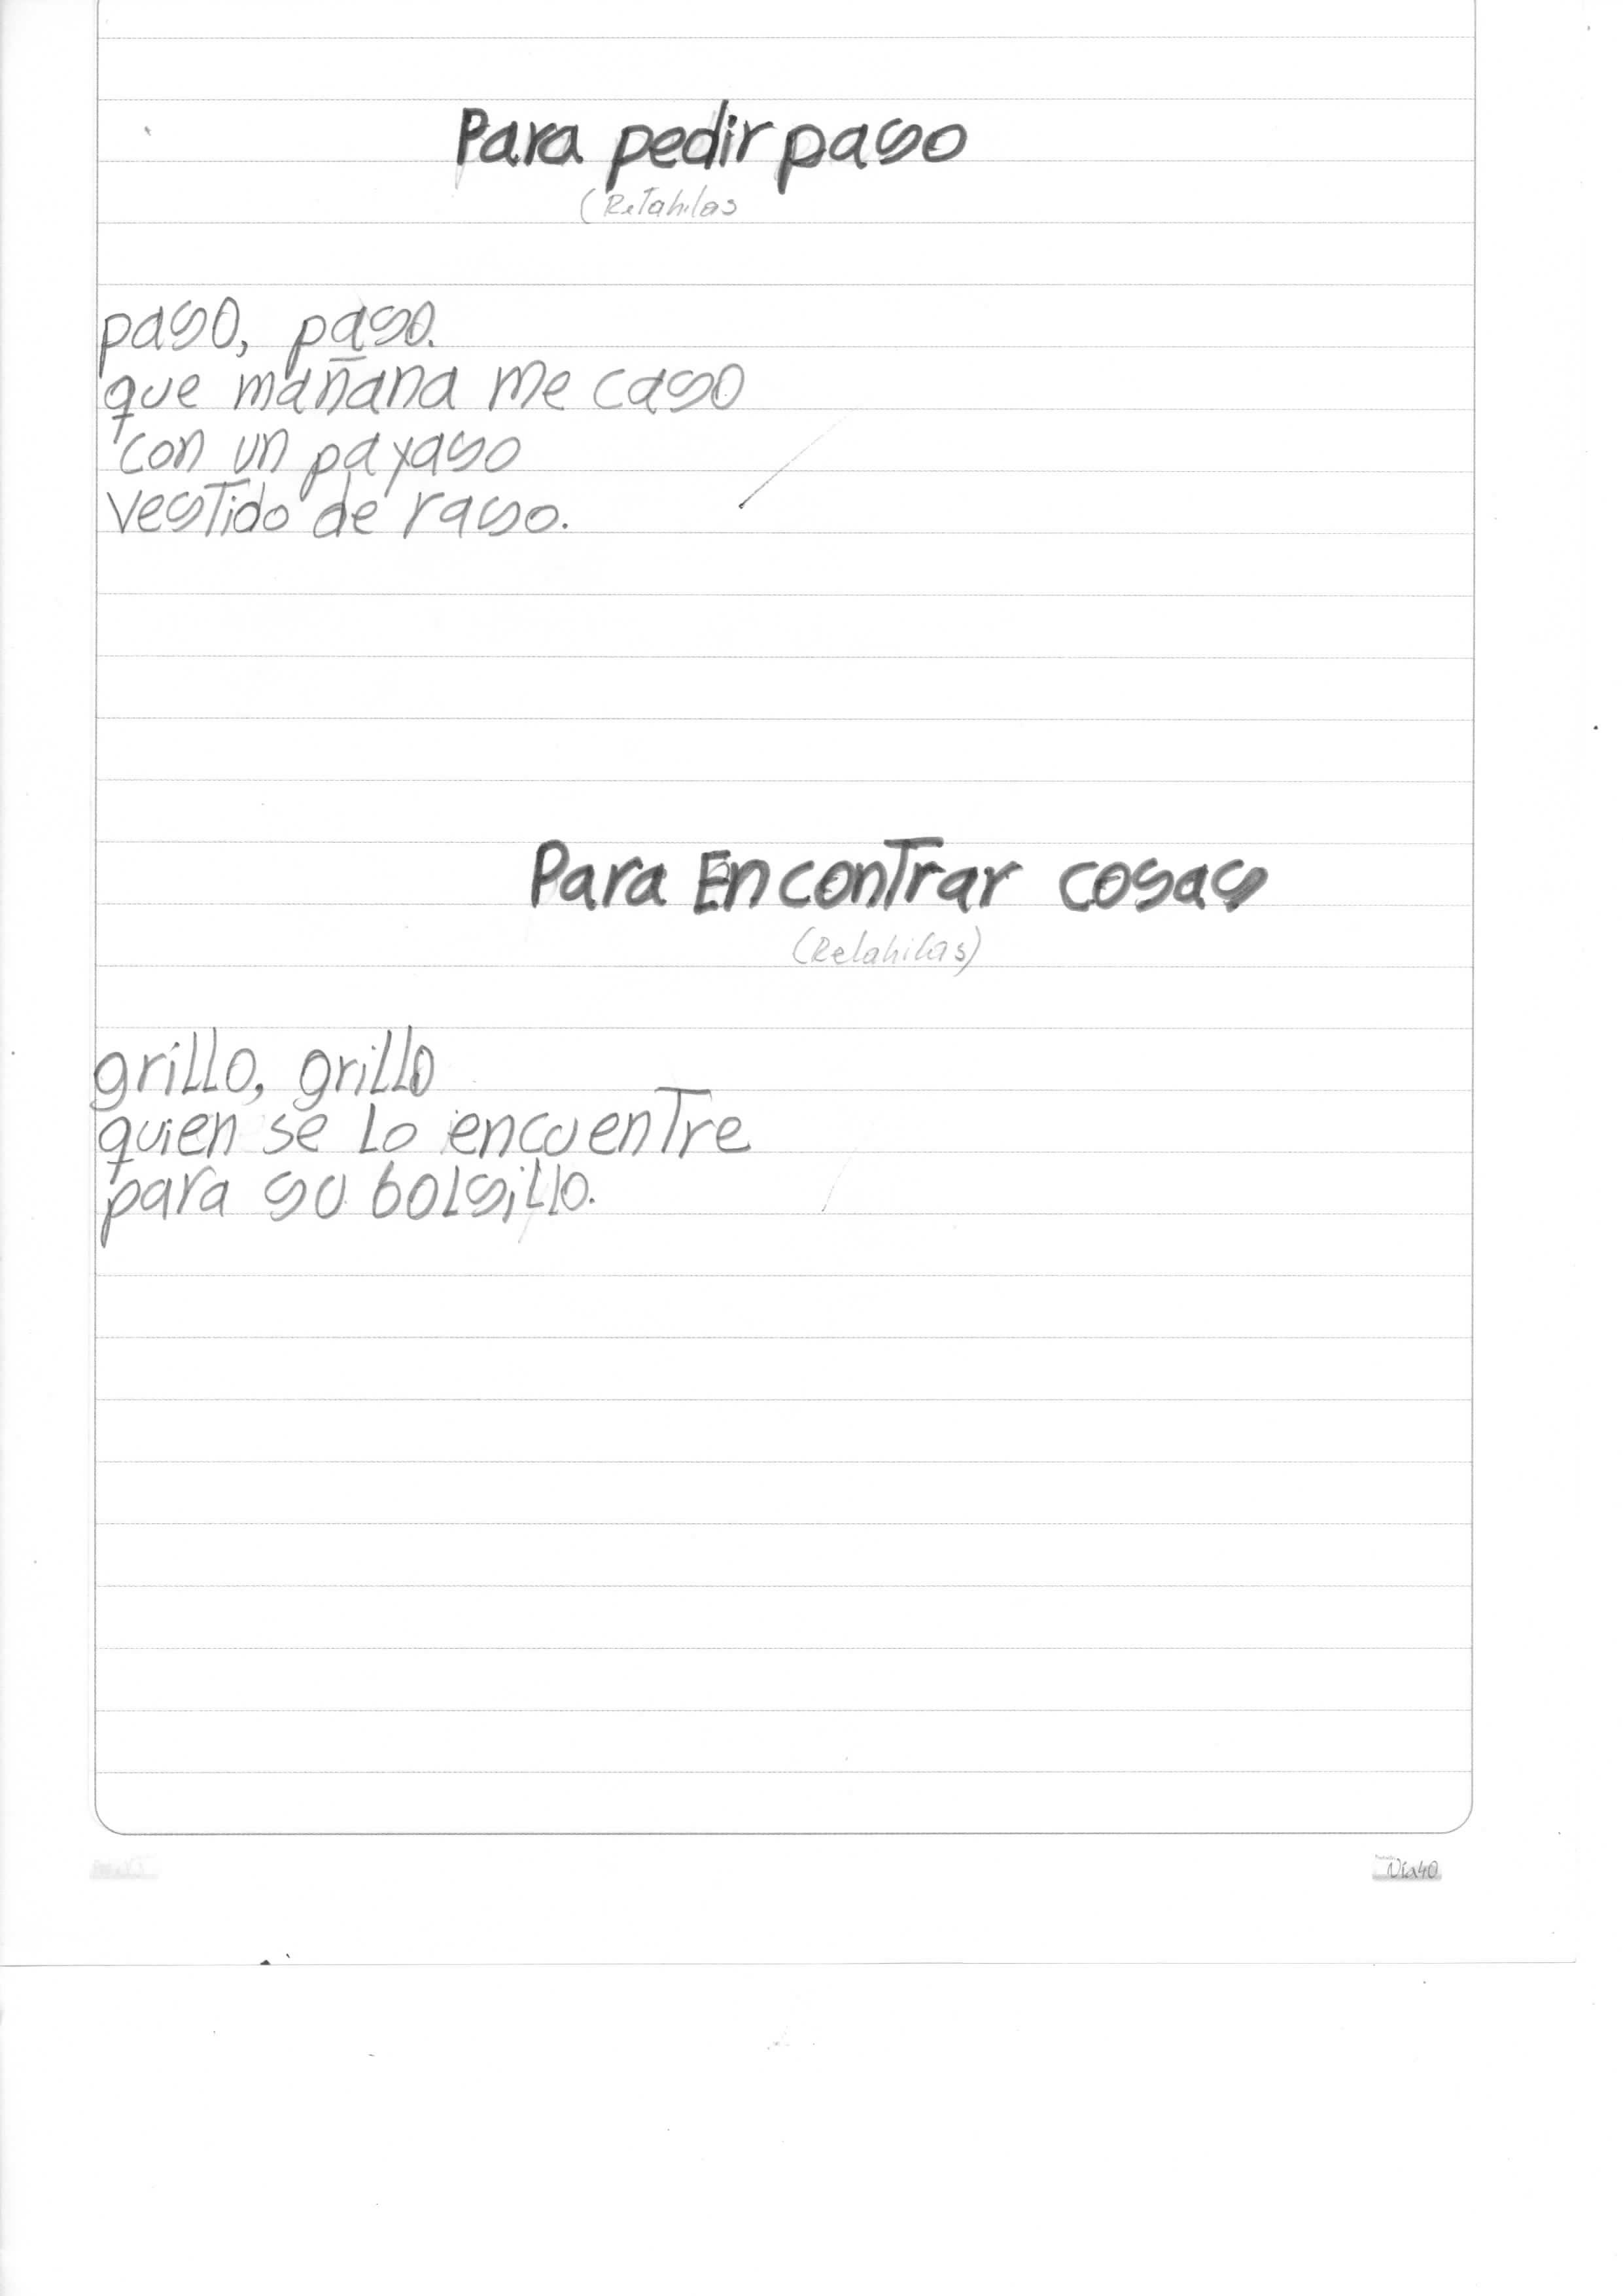 Para pedir paso
(Retahilas
paso, paso.
que mañana me caso
con un payaso
vestido de raso.
Para Encontrar cosas
(Retahilas)
grillo, grillo
quien se lo encuentre
para su bolsillo.